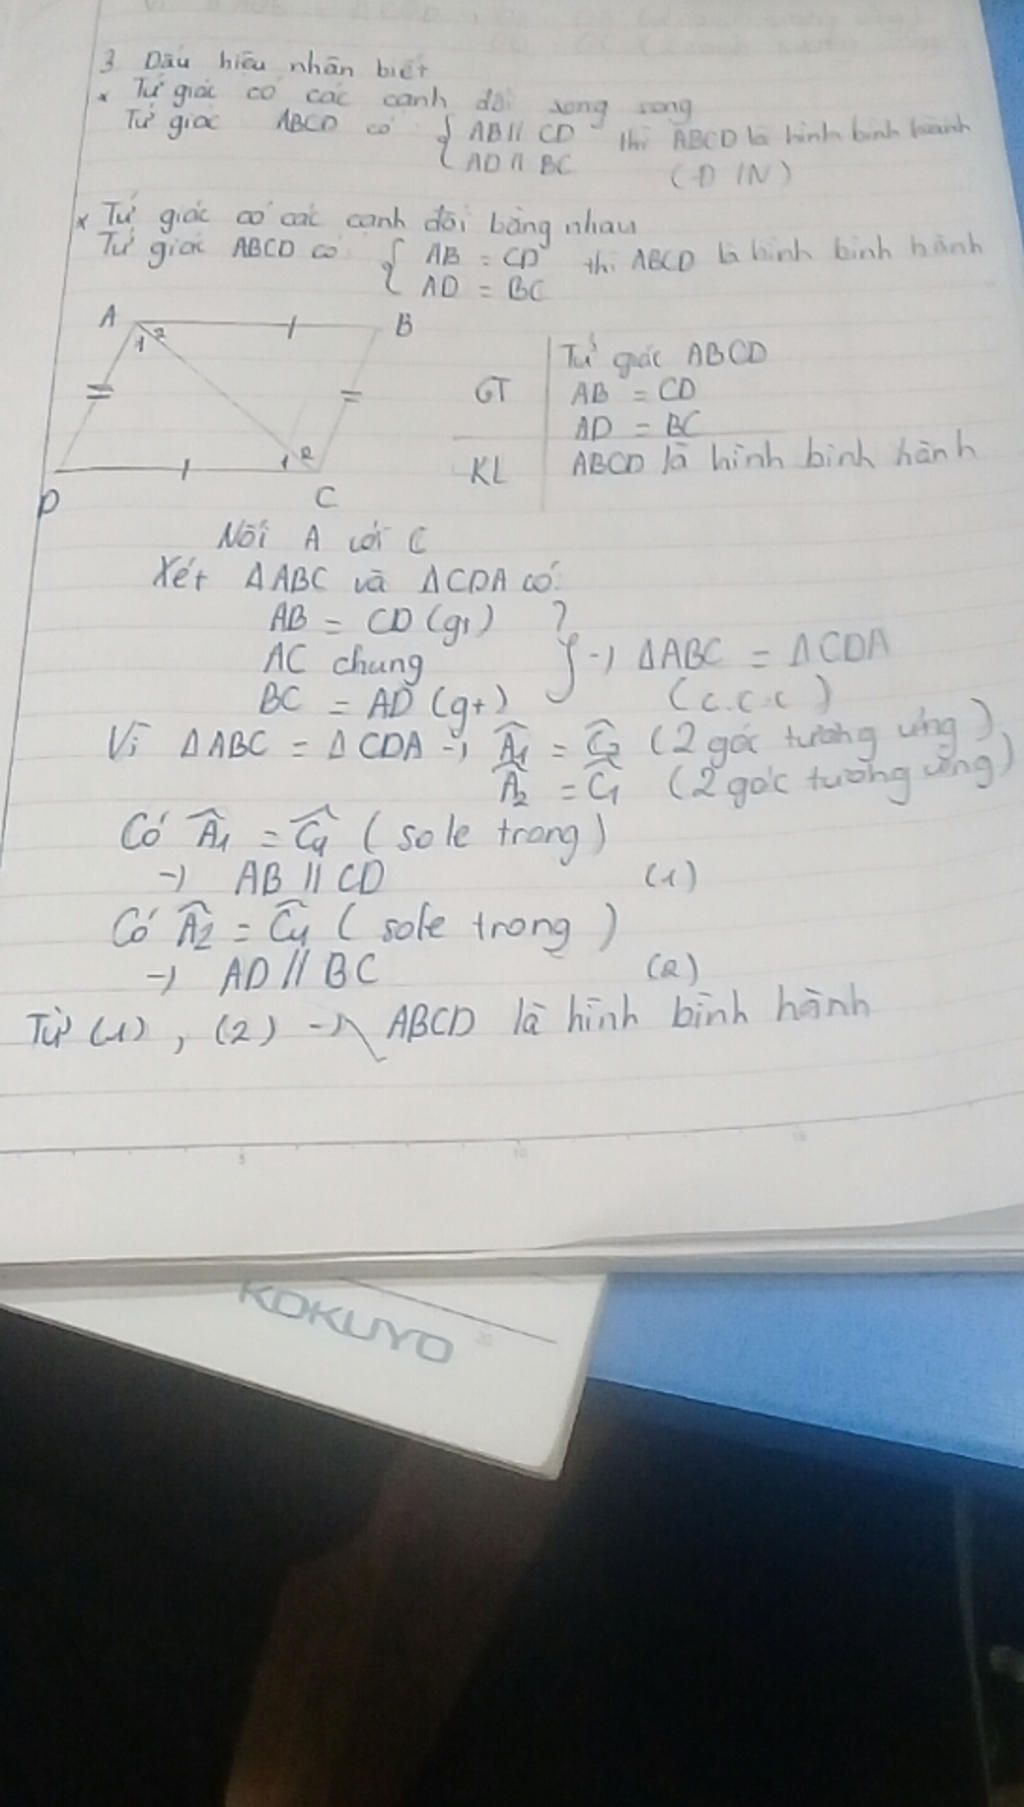 3 Dấu hiệu nhân biết
x Tứ giác có các canh đối song song
Tứ giác ABCD có { AB // CD thì ABCD là hình bình hành
AD // BC (Đ/N)
x Tứ giác có các canh đối bằng nhau
Tứ giác ABCD có { AB = CD thì ABCD là hình bình hành
AD = BC
A B
1 2
1 2
D C
Tứ giác ABCD
GT AB = CD
AD = BC
KL ABCD là hình bình hành
Nối A với C
Xét ΔABC và ΔCDA có:
AB = CD (gt)
AC chung } → ΔABC = ΔCDA
BC = AD (gt) (c.c.c)
Vì ΔABC = ΔCDA → Â1 = Ĉ2 (2 góc tương ứng)
Â2 = Ĉ1 (2 góc tương ứng)
Có Â1 = Ĉ1 (sole trong)
→ AB // CD (1)
Có Â2 = Ĉ1 (sole trong)
→ AD // BC (2)
Từ (1), (2) → ABCD là hình bình hành
5 10 15
KOKUYO
20